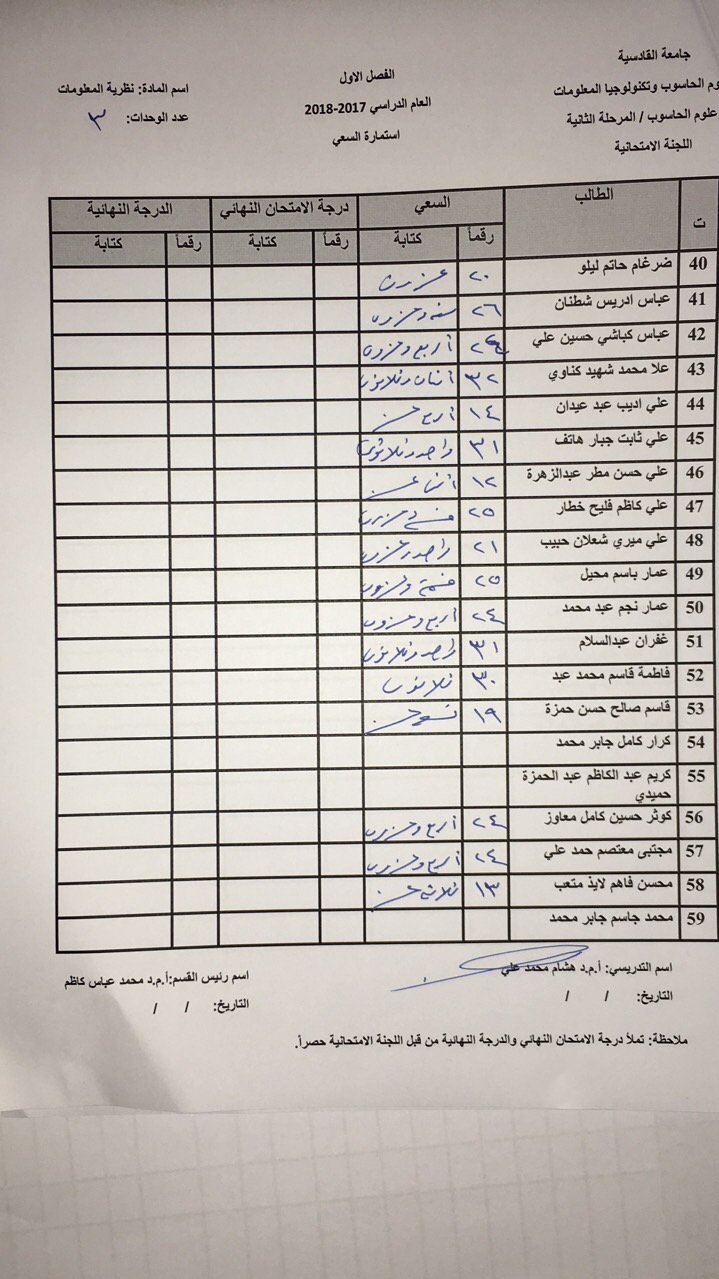 جامعة القادسية
وم الحاسوب وتكنولوجيا المعلومات
علوم الحاسوب / المرحلة الثانية
اللجنة الامتحانية
الفصل الاول
العام الدراسي 2017-2018
استمارة السعي
اسم المادة: نظرية المعلومات
عدد الوحدات: ٣
ت الطالب السعي درجة الامتحان النهائي الدرجة النهائية
رقماً كتابة رقماً كتابة رقماً كتابة
40 ضرغام حاتم ليلو ٢٠ عشرون
41 عباس ادريس شطنان ٢٦ سته وعشرون
42 عباس كباشي حسين علي ٢٤ أربع وعشرون
43 علا محمد شهيد كناوي ٣٢ أثنان وثلاثون
44 علي اديب عبد عيدان ١٤ أربع عشر
45 علي ثابت جبار هاتف ٣١ واحد وثلاثون
46 علي حسن مطر عبدالزهرة ١٢ أثنا عشر
47 علي كاظم فليح خطار ٢٥ خمس وعشرون
48 علي ميري شعلان حبيب ٢١ واحد وعشرون
49 عمار باسم محيل ٢٥ خمسة وعشرون
50 عمار نجم عبد محمد ٢٤ أربع وعشرون
51 غفران عبدالسلام ٣١ واحد وثلاثون
52 فاطمة قاسم محمد عبد ٣٠ ثلاثون
53 قاسم صالح حسن حمزة ١٩ تسع عشر
54 كرار كامل جابر محمد
55 كريم عبد الكاظم عبد الحمزة
حميدي
56 كوثر حسين كامل معاوز ٢٤ أربع وعشرون
57 مجتبى معتصم حمد علي ٢٤ أربع وعشرون
58 محسن فاهم لايذ متعب ١٣ ثلاثة عشر
59 محمد جاسم جابر محمد
اسم التدريسي: أ.م.د هشام محمد علي
التاريخ: / /
اسم رئيس القسم:أ.م.د محمد عباس كاظم
التاريخ: / /
ملاحظة: تملأ درجة الامتحان النهائي والدرجة النهائية من قبل اللجنة الامتحانية حصراً.